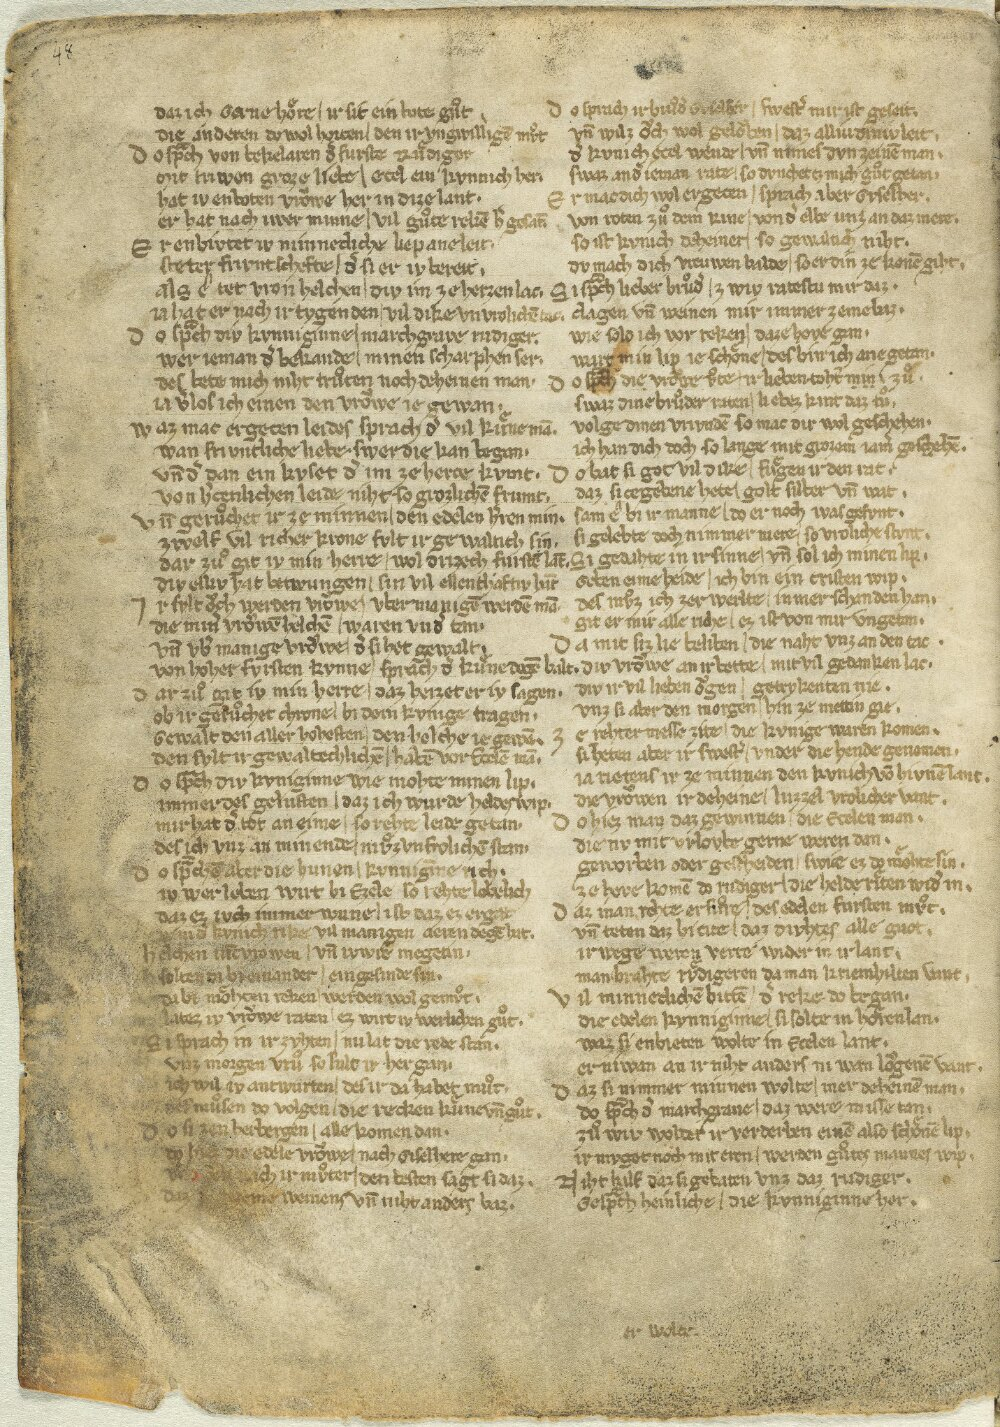 48
daz ich gerne hôre / ir sit ein bote gůt
die anderen do wol horten / den ir vngwilligē můt
D o sp͛ch von bekelaren d͛ furste Rudiger
mit triwen groze liebe / Ecel ein kynnich her
hat iv enboten vrôwe her in dize lant.
er hat nach iwer minne / vil gůte reken h͛ gesant
E r enbivtet iv minnecliche liep ane leit.
steter frivntschefte / d͛ si er iv bereit.
als e tet vron helchen / div im ze herzen lac.
ia hat er nach ir tygenden / vil dike vnvrolichen tac.
D o sp͛ch div kynniginne / marchgrave rudiger.
wer ieman d͛ bekande / minen scharphen ser.
des bete mich niht truten noch deheinen man.
ia v͛los ich einen den vrôwe ie gewan.
W az mac ergecen leides sprach d͛ vil kůne mā.
wan frivntliche liebe swer die kan began.
vn̄ d͛ dan ein kyset d͛ im ze herce kumt.
von h͛cenlichen leide niht so grozlichē frumt.
V n̄ gerůchet ir ze minnen / den edelen h͛ren min.
zwelf vil richer krone sylt ir gewaltich sin.
dar zů git iv min herre / wol drizech fursten lāt.
div elliv hat betwungen / sin vil ellenthaftiv hāt
I r sylt ôch werden vrôwe / vber manigē werdē mā.
die min vrôwē helchē / waren vnd͛ tan.
vn̄ vb͛ manige vrôwe / d͛ si het gewalt.
von hoher fyrsten kynne / sprach d͛ kůne degē balt.
D ar zů git iv min herre / daz heizet er iv sagen.
ob ir gerůchet chrone / bi dem kynige tragen.
gewalt den aller hohesten / den helche ie gewē.
den sylt ir gewaltechlichē / habē vor Ecelē mā.
D o sp͛ch div kyniginne wie mohte minen lip.
immer des gelusten / daz ich wurde heldes wip.
mir hat d͛ tot an eime / so rehte leide getan.
des ich vnz an min ende / mvz vnfrolichē stan.
D o sp͛chē aber die hunen / kynniginne rich.
iv wer leben wirt bi Ezele so rehte lobelich
daz ez ivch immer wune / ist daz ez ergat
kynich rike vil manigen degē hat.
h elchen vrowen / vn̄ iwer megetin.
solten di bi einander / ein gesinde sin.
da bi mohten reken werden wol gemůt.
latez iv vrôwe raten / ez wirt iv werlichen gůt.
S i sprach in ir zyhten / nu lat die rede stan.
vnz morgen vrů / so sult ir her gan.
ich wil iv antwurten / des ir da habet můt.
des můsen do volgen / die recken kůne vn̄ gůt.
D o si zen herbergen / alle komen dan.
do hiez die edele vrôwe / nach Giselhere gan.
vn̄ ôch nach ir můter / den besten sagt si daz.
daz weinens / vn̄ niht anders baz.
D o sprach ir brud͛ Giselher / swest͛ mir ist geseit.
vn̄ wilz ôch wol gelôben / daz alliv diniv leit.
d͛ kynich ecel wende / vn̄ nimes dvn zeinē man.
swaz and͛ ieman rate / so dvnchet ez mich gůt getan.
E r mac dich wol ergecen / sprach aber Giselher.
von roten zů dem Rine / von d͛ elbe vnz an daz mere.
so ist kynich deheiner / so gewaltich niht.
dv mach dich vreuwen balde / so er din ze konē giht.
S i sp͛ch lieber brůd͛ / z wiv ratestu mir daz.
clagen vn̄ weinen mir immer zeme baz.
wie sold ich vor reken / daze hove gan.
wart min lip ie schône / des bin ich ane getan.
D o sp͛ch die vrôwe vte / ir lieben toht͛ min zů.
swaz dine brůder raten / liebez kint daz tů.
volge dinen vrivnden so mac dir wol geschehen.
ich han dich doch so lange mit grozem iam͛ gesehehē.
D o bat si got vil dike / fůgen ir den rat.
daz si ce gebene hete / golt silber vn̄ wat.
sam e bi ir manne / do er noch was gesvnt.
si gelebte doch nimmer mere / so vroliche stvnt.
S i gedahte in ir sinne / vn̄ sol ich minen lip.
geben eime heide / ich bin ein cristen wip.
des mvz ich zer werlte / immer schanden han.
git er mir alle riche / ez ist von mir vngetan.
D a mit siz lie beliben / die naht vnz an den tac
div vrôwe an ir bette / mit vil gedanken lac.
div ir vil lieben ôgen / getrykenten nie.
vnz si aber den morgen / hin ze mettin gie.
Z e rehter messe zite / die kynige waren komen.
si heten aber ir swest͛ / vnder die hende genomen.
ia rietens ir ze minnen den kynich vō hivnē lant.
die vrôwen ir deheine / luzzel vrolicher vant.
D o hiez man daz gewinnen / die Ecelen man.
die nv mit vrloybe gerne weren dan.
geworben oder gescheiden / swie ez do môhte sin.
ze hove komē do rudiger / die helde riten wid͛ in.
D az man rehte erfure / des edelen fursten můt.
vn̄ teten daz bi cite / daz dvhtes alle guot.
ir wege weren verre wider in ir lant.
man brahte rvdigeren da man kriemhilten vant.
V il minneclichē bittē / d͛ reke do began.
die edelen kynniginne / si solte in hôren lan.
waz si enbieten wolte in Ecelen lant.
er niwan an ir niht anders niwan lôgenē vant.
D az si nimmer minnen wolte / mer deheinē man.
do sp͛ch d͛ marchgrave / daz were misse tan.
zů wiv woldet ir verderben einē also schônē lip.
ir myget noch mit eren / werden gůtes mannes wip.
N iht half daz si gebaten vnz daz rudiger.
gesp͛ch heinliche / die kynniginne her.
er wolte.